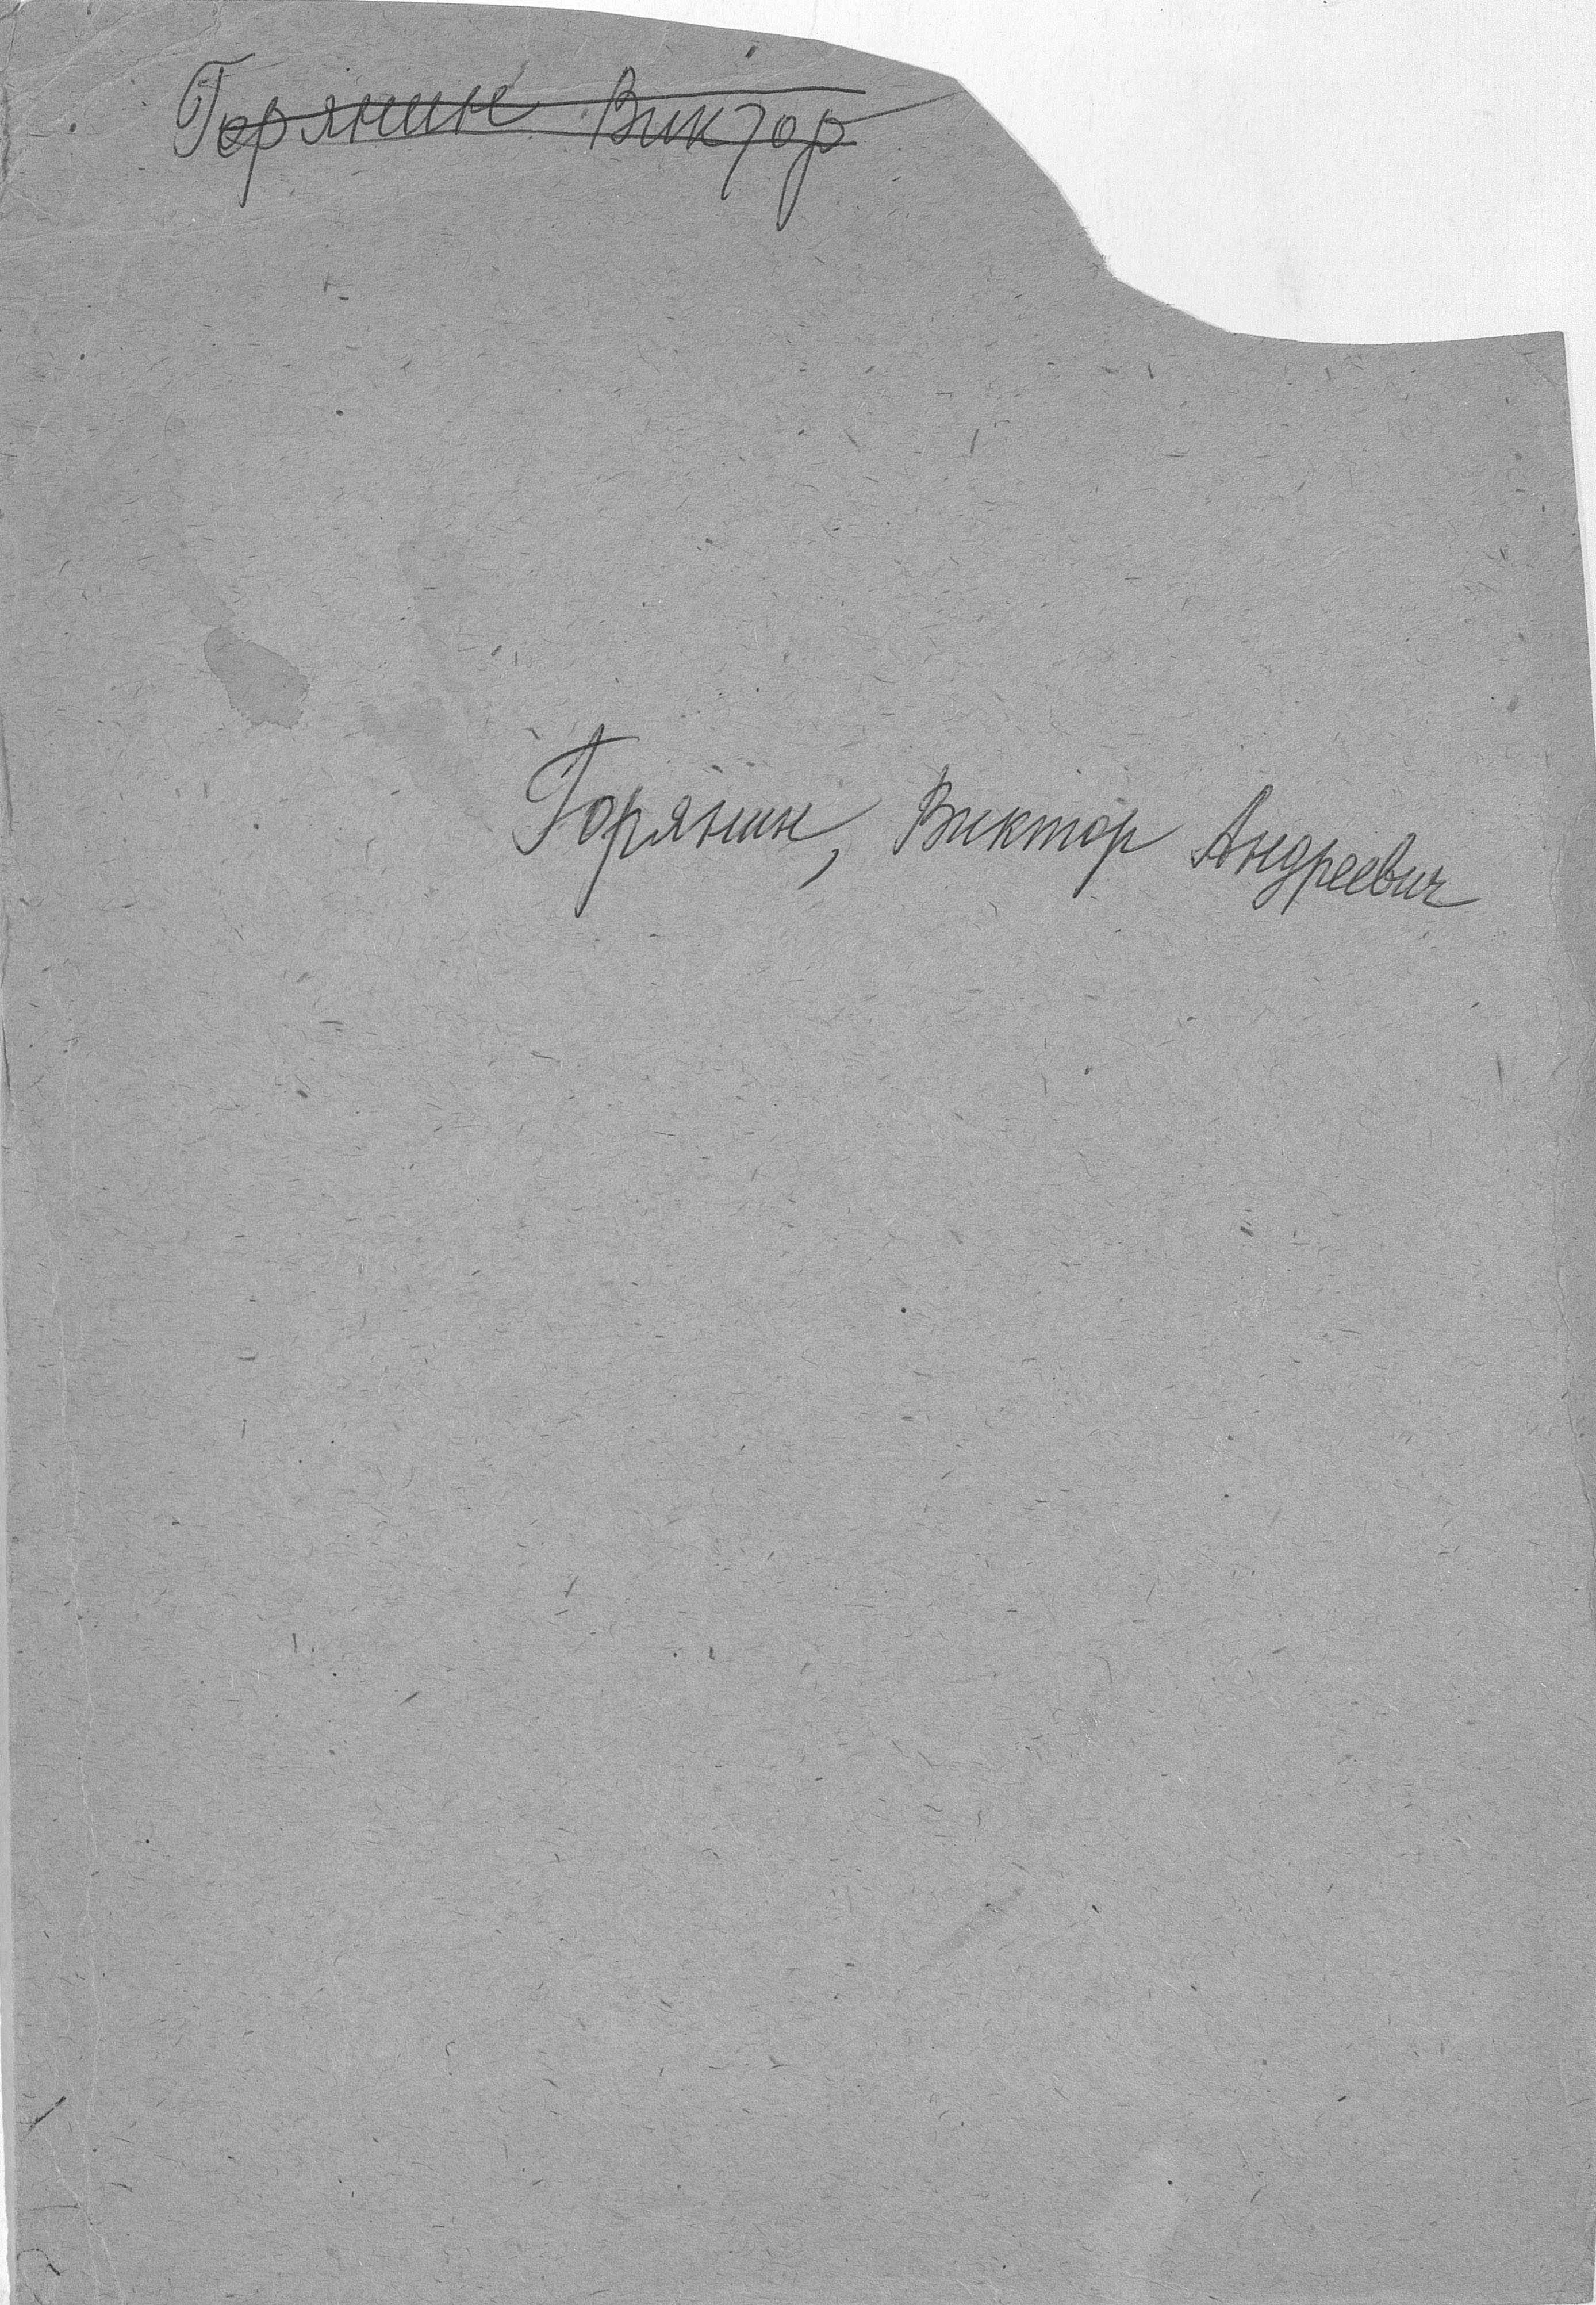 Горянин Виктор
Горянин, Виктор Андреевич